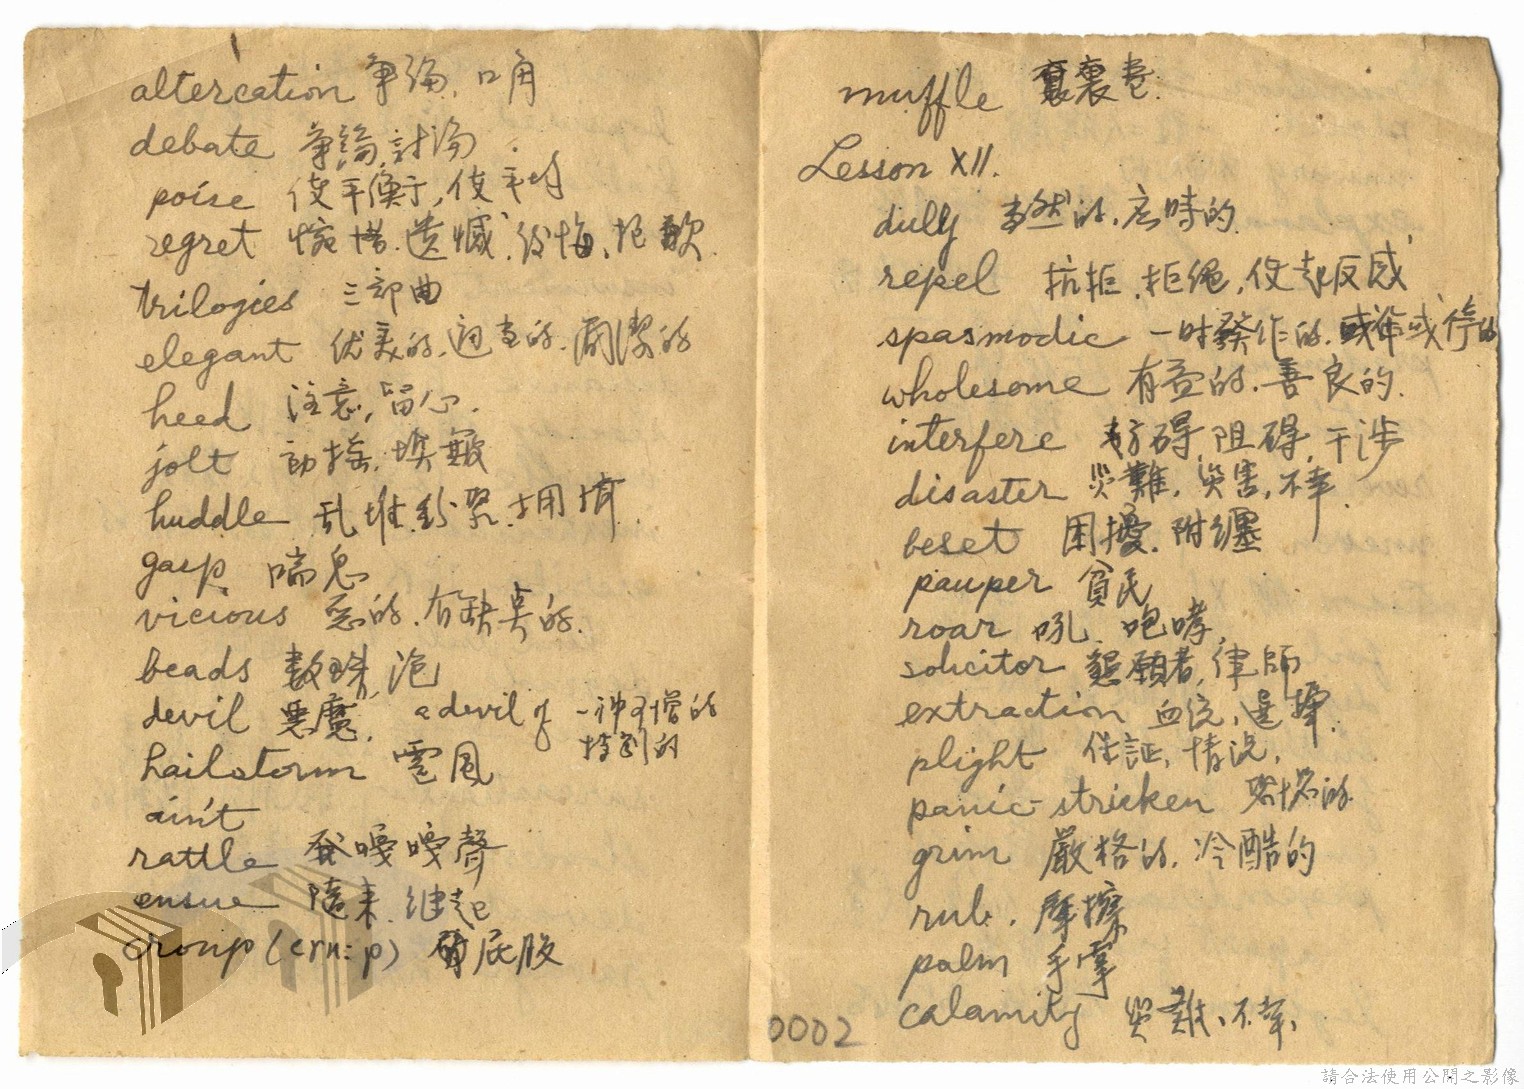 altercation 争論、口角
debate 争論,討論
poise 使平衡,使平均
regret 惋惜、遺憾、後悔、抱歉
trilogies 三部曲
elegant 优美的、適当的、簡潔的
heed 注意,留心.
jolt 動搖,
huddle 乱堆 拥擠.
gasp 喘息
vicious 惡的、有缺点的.
beads 数珠,泡
devil 悪魔, a devil of 一种可憎的
特別的
hailstorm 雹風
ain't
rattle 發嘎嘎聲
ensue 隨來、继起
croup (cru:p) 屁股
muffle 裹卷.
Lesson XII.
dully 当然的,应時的
repel 抗拒、拒绝,使起反感
spasmodic 一时發作的.或作或停的
wholesome 有益的、善良的.
interfere 妨碍,阻碍,干涉
disaster 災難,災害,不幸.
beset 困擾、附纏
pauper 貧民
roar 吼、咆哮,
solicitor 懇願者,律師
extraction 血统、選擇.
plight 保証,情况,
panic-stricken
grim 嚴格的、冷酷的
rub. 摩擦
palm 手掌
calamity 災難、不幸、
0002
請合法使用公開之影像